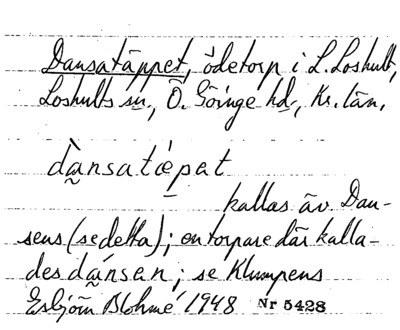 Dansatäppet, ödetorp i L. Loshult,
Loshults sn., Ö. Göinge hd., Kr. län.
dansatæpat
kallas äv. Dan-
sens (se detta); en torpare där kalla-
des dánsen; se Klumpens
Esbjörn Blohmé 1948 Nr 5428